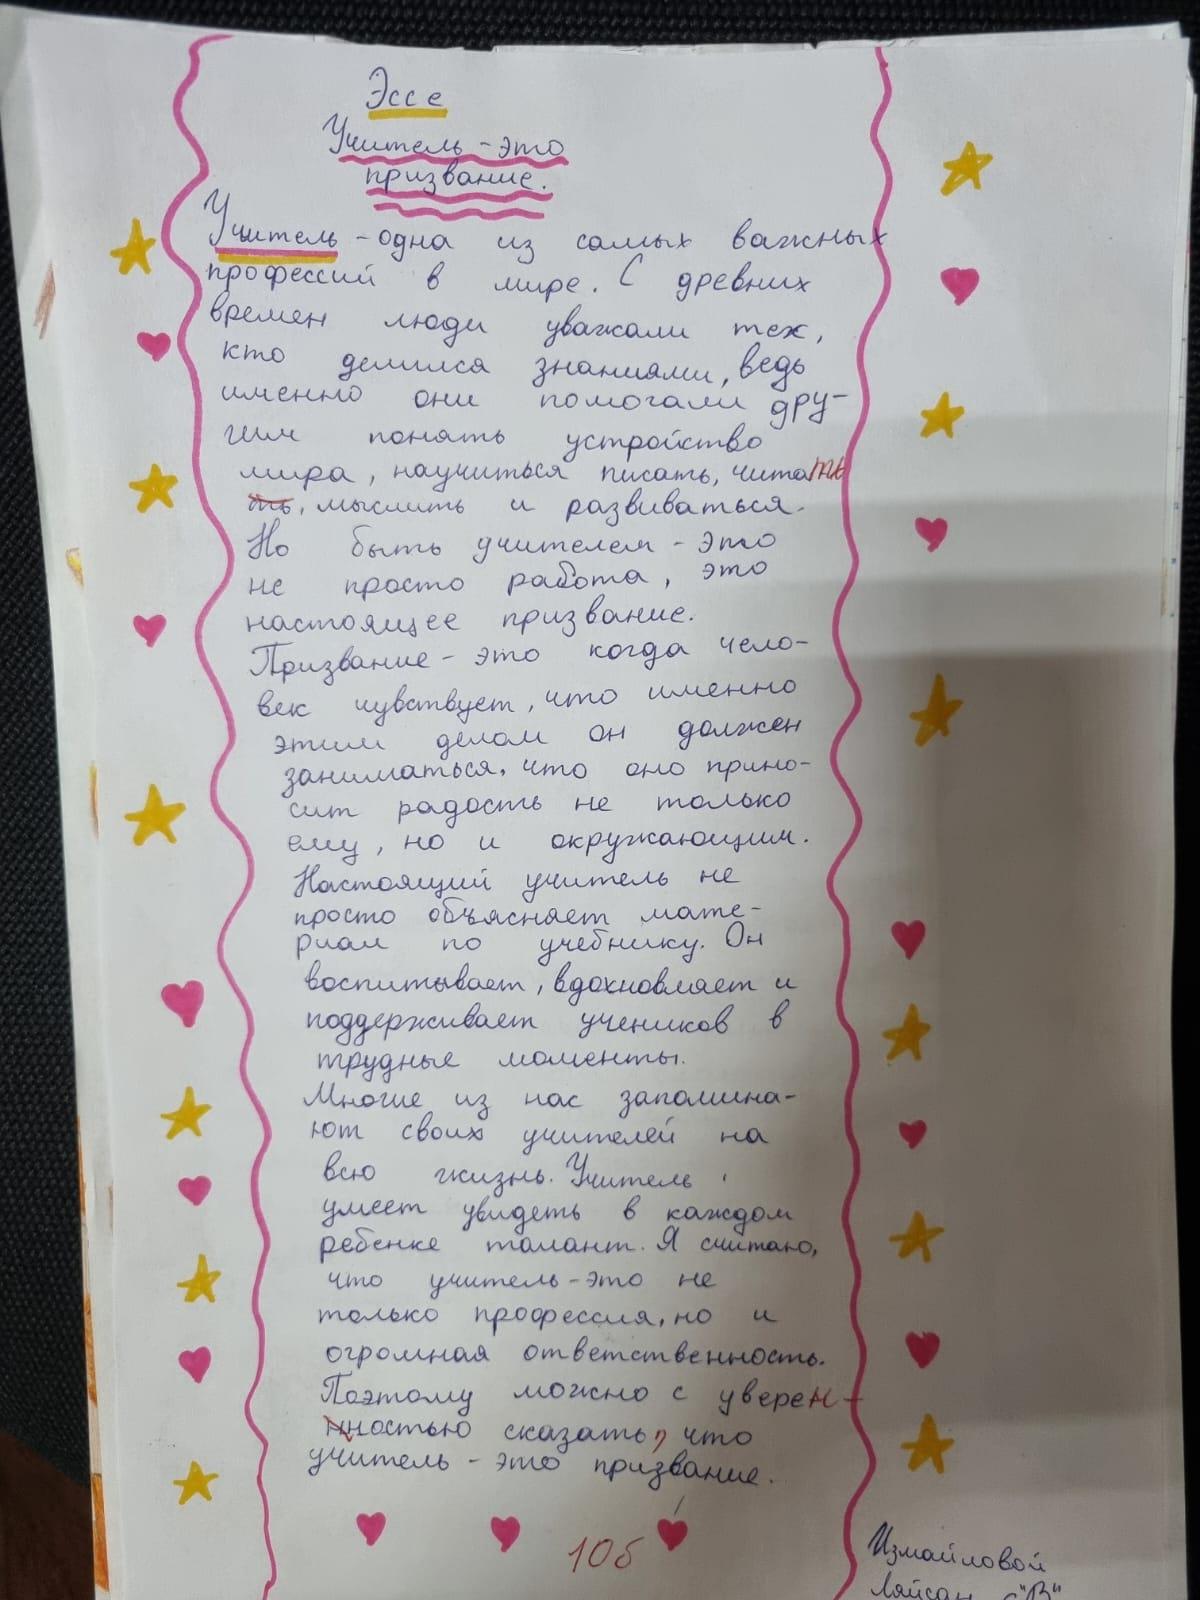 Эссе
Учитель - это
призвание.
Учитель - одна из самых важных
профессий в мире. С древних
времен люди уважали тех,
кто делился знаниями, ведь
именно они помогали дру-
гим понять устройство
мира, научиться писать, читать
ть, мыслить и развиваться.
Но быть учителем - это
не просто работа, это
настоящее призвание.
Призвание - это когда чело-
век чувствует, что именно
этим делом он должен
заниматься, что оно прино-
сит радость не только
ему, но и окружающим.
Настоящий учитель не
просто объясняет мате-
риал по учебнику. Он
воспитывает, вдохновляет и
поддерживает учеников в
трудные моменты.
Многие из нас запомина-
ют своих учителей на
всю жизнь. Учитель
умеет увидеть в каждом
ребенке талант. Я считаю,
что учитель - это не
только профессия, но и
огромная ответственность.
Поэтому можно с уверен-
нностью сказать, что
учитель - это призвание.
10б
Измайловой
Ляйсан "В"